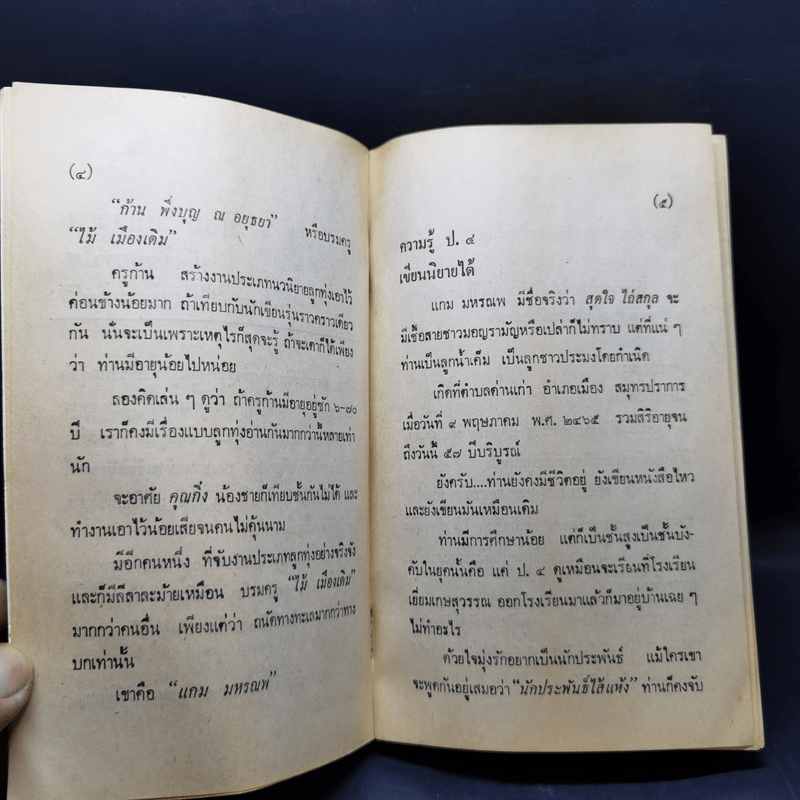 (๔)
"ก้าน พึ่งบุญ ณ อยุธยา" หรือบรมครู
"ไม้ เมืองเดิม"
ครูก้าน สร้างงานประเภทนวนิยายลูกทุ่งเอาไว้
ค่อนข้างน้อยมาก ถ้าเทียบกับนักเขียนรุ่นราวคราวเดียว
กัน นั่นจะเป็นเพราะเหตุไรก็สุดจะรู้ ถ้าจะเดาก็ได้เพียง
ว่า ท่านมีอายุน้อยไปหน่อย
ลองคิดเล่น ๆ ดูว่า ถ้าครูก้านมีอายุอยู่ซัก ๖-๗๐
ปี เราก็คงมีเรื่องแบบลูกทุ่งอ่านกันมากกว่านี้หลายเท่า
นัก
จะอาศัย คุณกิ่ง น้องชายก็เทียบชั้นกันไม่ได้ และ
ทำงานเอาไว้น้อยเสียจนคนไม่คุ้นนาม
มีอีกคนหนึ่ง ที่จับงานประเภทลูกทุ่งอย่างจริงจัง
และก็มีลีลาละม้ายเหมือน บรมครู "ไม้ เมืองเดิม"
มากกว่าคนอื่น เพียงแต่ว่า ถนัดทางทะเลมากกว่าทาง
บกเท่านั้น
เขาคือ "แถม มหรณพ"
(๕)
ความรู้ ป. ๔
เขียนนิยายได้
แถม มหรณพ มีชื่อจริงว่า สุดใจ ไอ่สกุล จะ
มีเชื้อสายชาวมอญรามัญหรือเปล่าก็ไม่ทราบ แต่ที่แน่ ๆ
ท่านเป็นลูกน้ำเค็ม เป็นลูกชาวประมงโดยกำเนิด
เกิดที่ตำบลด่านเก่า อำเภอเมือง สมุทรปราการ
เมื่อวันที่ ๙ พฤษภาคม พ.ศ. ๒๔๖๕ รวมสิริอายุจน
ถึงวันนี้ ๕๗ ปีบริบูรณ์
ยังครับ....ท่านยังคงมีชีวิตอยู่ ยังเขียนหนังสือไหว
และยังเขียนมันเหมือนเดิม
ท่านมีการศึกษาน้อย แต่ก็เป็นชั้นสูงเป็นชั้นบัง-
คับในยุคนั้นคือ แค่ ป. ๔ ดูเหมือนจะเรียนที่โรงเรียน
เยี่ยมเกษสุวรรณ ออกโรงเรียนมาแล้วก็มาอยู่บ้านเฉย ๆ
ไม่ทำอะไร
ด้วยใจมุ่งรักอยากเป็นนักประพันธ์ แม้ใครเขา
จะพูดกันอยู่เสมอว่า "นักประพันธ์ไส้แห้ง" ท่านก็คงจับ